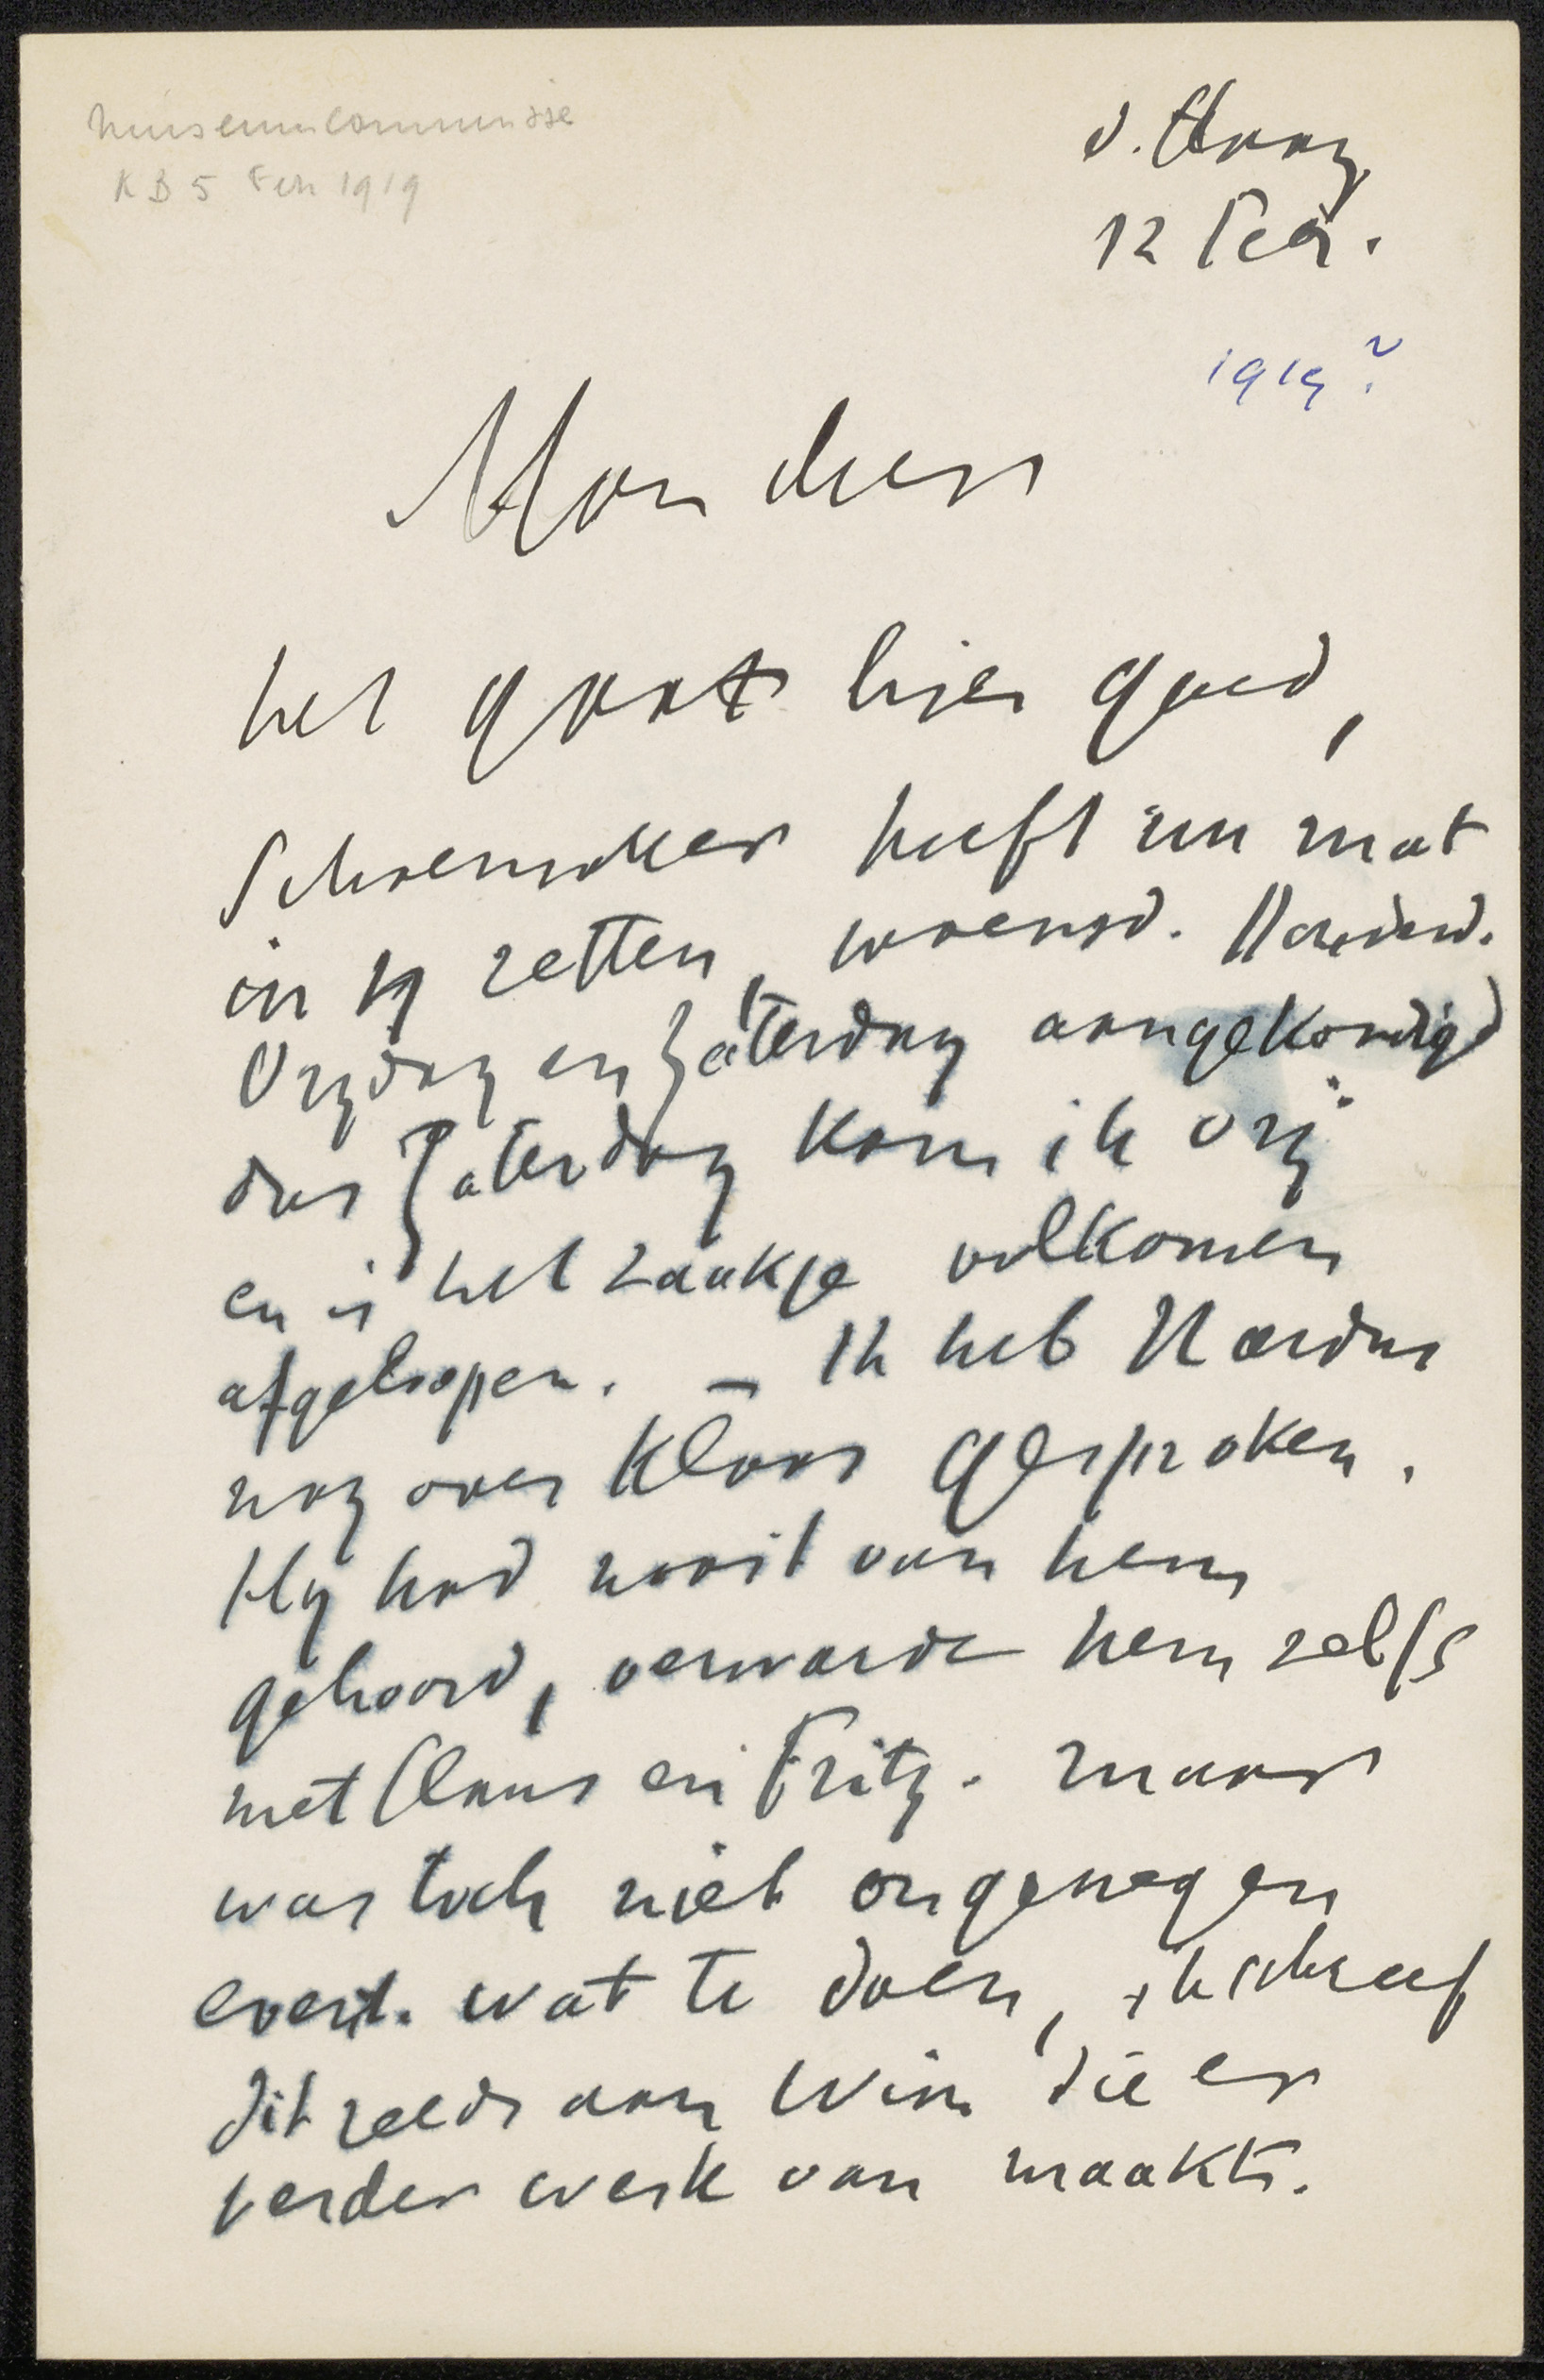 Museumcommissie
KB 5 Feb 1919
d. Haag
12 Feb.
1919?
Mon cher
het gaat hier goed,
Schoemaker heeft nu mat
in 19 zetten, woensd. Donderd.
Vrydag en Zaterdag aangekondigd
dus Zaterdag kom ik vrij
en is het zaakje volkomen
afgeloopen. – Ik heb Nardus
nog over Klaas gesproken.
Hy had nooit van hem
gehoord, verwarde hem zelfs
met Claus en Fritz. maar
was toch niet ongenegen
event. wat te doen, ik schreef
dit reeds aan Wim die er
verder werk van maakt.